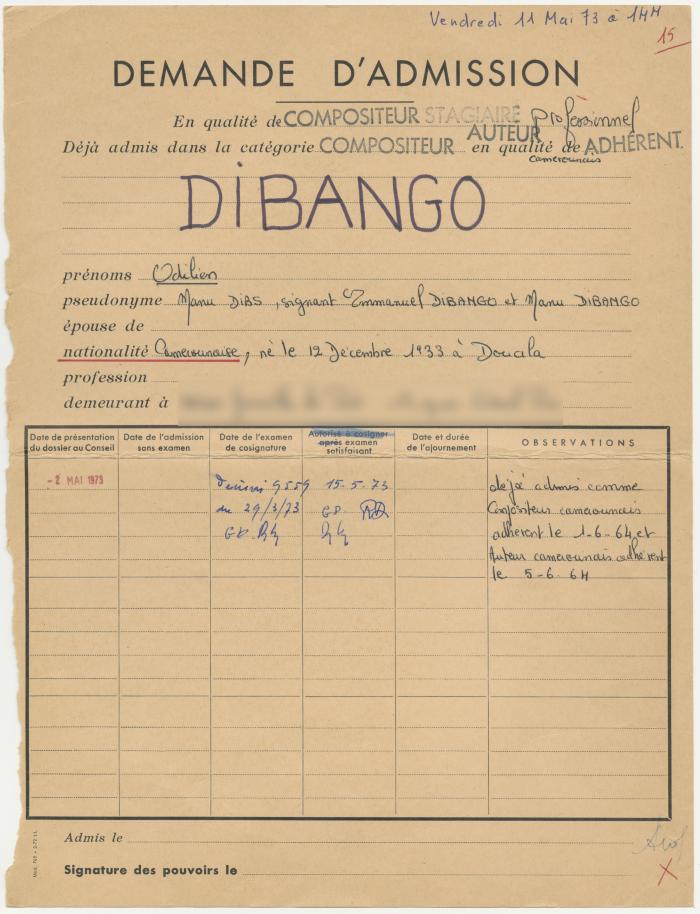 Vendredi 11 Mai 73 à 14H
15
DEMANDE D'ADMISSION
En qualité de COMPOSITEUR STAGIAIRE professionnel
AUTEUR
Déjà admis dans la catégorie COMPOSITEUR en qualité de ADHÉRENT.
camerounais
DIBANGO
prénoms Odilien
pseudonyme Manu DIBS, signant Emmanuel DIBANGO et Manu DIBANGO
épouse de
nationalité Camerounaise, né le 12 Décembre 1933 à Douala
profession
demeurant à
Date de présentation du dossier au Conseil
Date de l'admission sans examen
Date de l'examen de cosignature
Autorisé à cosigner après examen satisfaisant
Date et durée de l'ajournement
OBSERVATIONS
-2 MAI 1973
9559 15.5.73
du 29/3/73
déjà admis comme
Compositeur camerounais
adhérent le 1-6-64 et
Auteur camerounais adhérent
le 5-6-64
Admis le
Signature des pouvoirs le